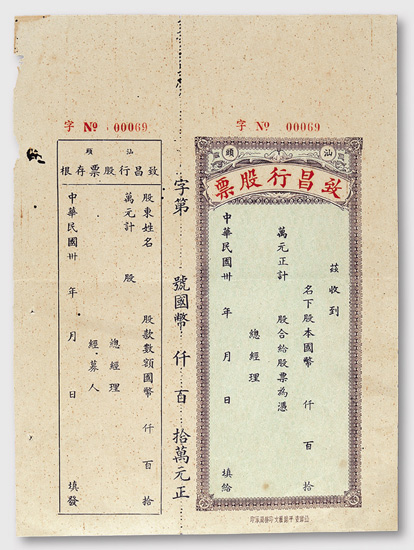 字 № 00069
汕頭
致昌行股票
茲收到
名下股本國幣 仟 百 拾
萬元正計 股合給股票為憑
總經理
中華民國卅 年 月 日 填給
字第 號國幣 仟 百 拾萬元正
字 № 00069
汕頭
致昌行股票存根
股東姓名 股款數額國幣 仟 百 拾
萬元計 股
總經理
經募人
中華民國卅 年 月 日 填發